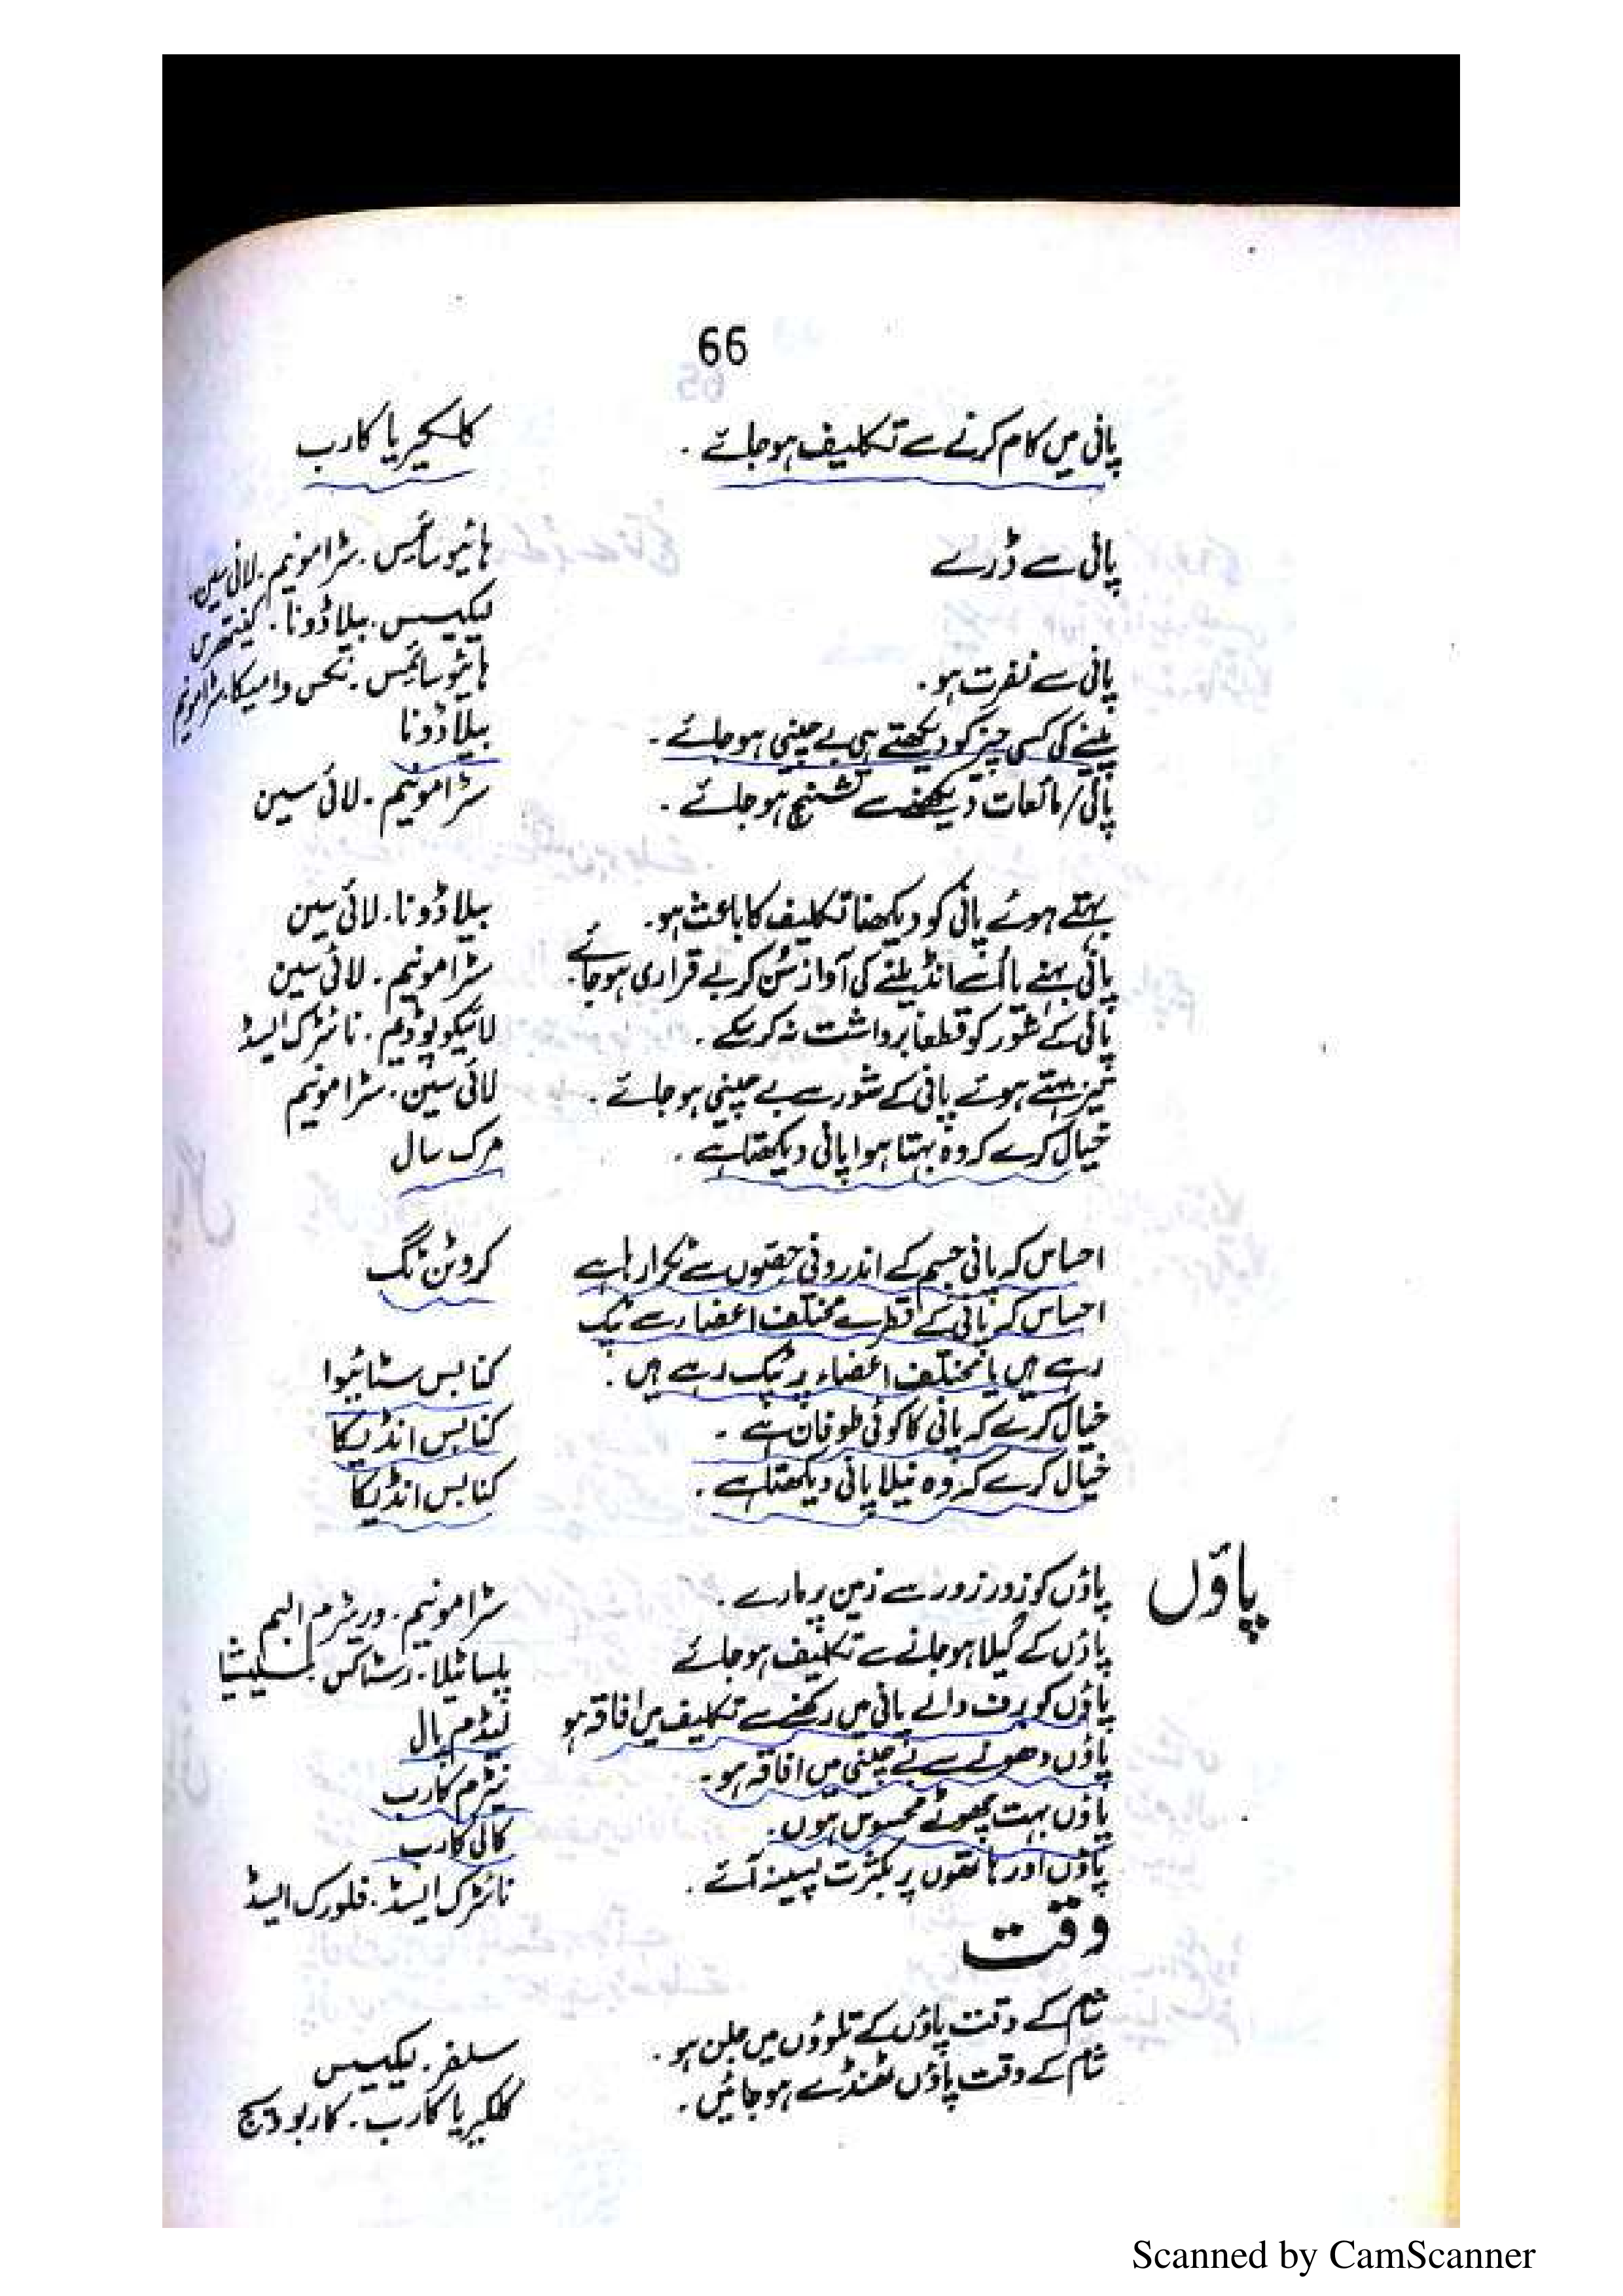 66
پانی میں کام کرنے سے تکلیف ہو جائے ۔ کلکیریا کارب
پانی سے ڈرے ہائیوسائمس ۔ سٹرامونیم ۔ لائی سین ۔
لیکیسس ۔ بیلاڈونا ۔ کینتھرس
پانی سے نفرت ہو ۔ ہائیوسائمس ۔ نکس وامیکا ۔ سٹرامونیم
پینے کی کسی چیز کو دیکھتے ہی بے چینی ہو جائے ۔ بیلاڈونا
پانی/مائعات دیکھنے سے تشنج ہو جائے ۔ سٹرامونیم ۔ لائی سین
بہتے ہوئے پانی کو دیکھنا تکلیف کا باعث ہو۔ بیلاڈونا ۔ لائی سین
پانی بہنے یا اُسے انڈیلنے کی آواز سُن کر بے قراری ہو جائے ۔ سٹرامونیم ۔ لائی سین
پانی کے شور کو قطعاً برداشت نہ کر سکے ۔ لائیکوپوڈیم ۔ نائٹرک ایسڈ
تیز بہتے ہوئے پانی کے شور سے بے چینی ہو جائے ۔ لائی سین ۔ سٹرامونیم
خیال کرے کہ وہ بہتا ہوا پانی دیکھتا ہے ۔ مرک سال
احساس کہ پانی جسم کے اندرونی حصّوں سے ٹکرا رہا ہے کروٹن ٹگ
احساس کہ پانی کے قطرے مختلف اعضاء سے ٹپک
رہے ہیں یا مختلف اعضاء پر ٹپک رہے ہیں ۔ کنابس سٹائیوا
خیال کرے کہ پانی کا کوئی طوفان ہے ۔ کنابس انڈیکا
خیال کرے کہ وہ نیلا پانی دیکھتا ہے ۔ کنابس انڈیکا
پاؤں
پاؤں کو زور زور سے زمین پر مارے ۔ سٹرامونیم ۔ وریٹرم البم
پاؤں کے گیلا ہو جانے سے تکلیف ہو جائے پلساٹیلا ۔ رسٹاکس
پاؤں کو برف والے پانی میں رکھنے سے تکلیف میں افاقہ ہو لیڈم پال
پاؤں دھونے سے بے چینی میں افاقہ ہو ۔ نیٹرم کارب
پاؤں بہت چھوٹے محسوس ہوں ۔ کالی کارب
پاؤں اور ہاتھوں پر بکثرت پسینہ آئے ۔ نائٹرک ایسڈ ۔ فلورک ایسڈ
وقت
شام کے وقت پاؤں کے تلوؤں میں جلن ہو ۔ سلفر ۔ لیکیسس
شام کے وقت پاؤں ٹھنڈے ہو جائیں ۔ کلکیریا کارب ۔ کاربو ویج
Scanned by CamScanner